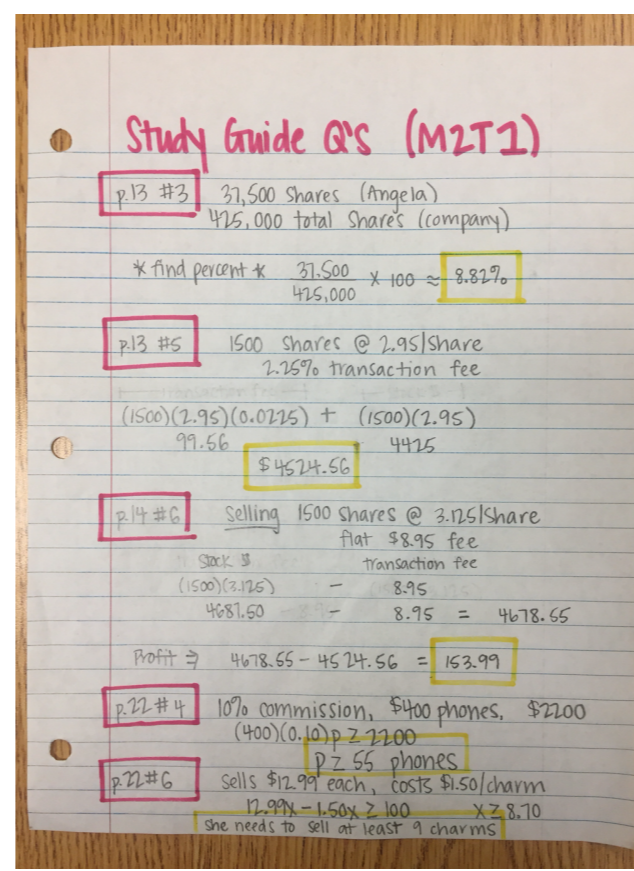 Study Guide Q'S (M2T1)
p.13 #3 37,500 Shares (Angela)
425,000 total Shares (company)
* find percent * 37.500 / 425,000 X 100 ≈ 8.82%
p.13 #5 1500 shares @ 2.95/share
2.25% transaction fee
(1500)(2.95)(0.0225) + (1500)(2.95)
99.56 4425
$4524.56
p.14 #6 selling 1500 shares @ 3.125/share
flat $8.95 fee
Stock $ transaction fee
(1500)(3.125) - 8.95
4687.50 - 8.95 = 4678.55
Profit ⇒ 4678.55 - 4524.56 = 153.99
p.22 #4 10% commission, $400 phones, $2200
(400)(0.10)p ≥ 2200
p ≥ 55 phones
p.22 #6 sells $12.99 each, costs $1.50/charm
12.99x - 1.50x ≥ 100 x ≥ 8.70
she needs to sell at least 9 charms